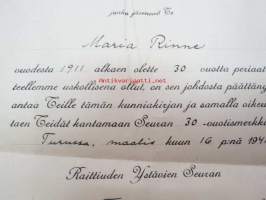 jonka jäsenenä Te
Maria Rinne
vuodesta 1911 alkaen olette 30 vuotta periaat
teellemme uskollisena ollut, on sen johdosta päättän
antaa Teille tämän kunniakirjan ja samalla oikeu
taen Teidät kantamaan Seuran 30-vuotismerkk
Turussa, maalis kuun 16 p:nä 194
Raittiuden Ystävien Seuran